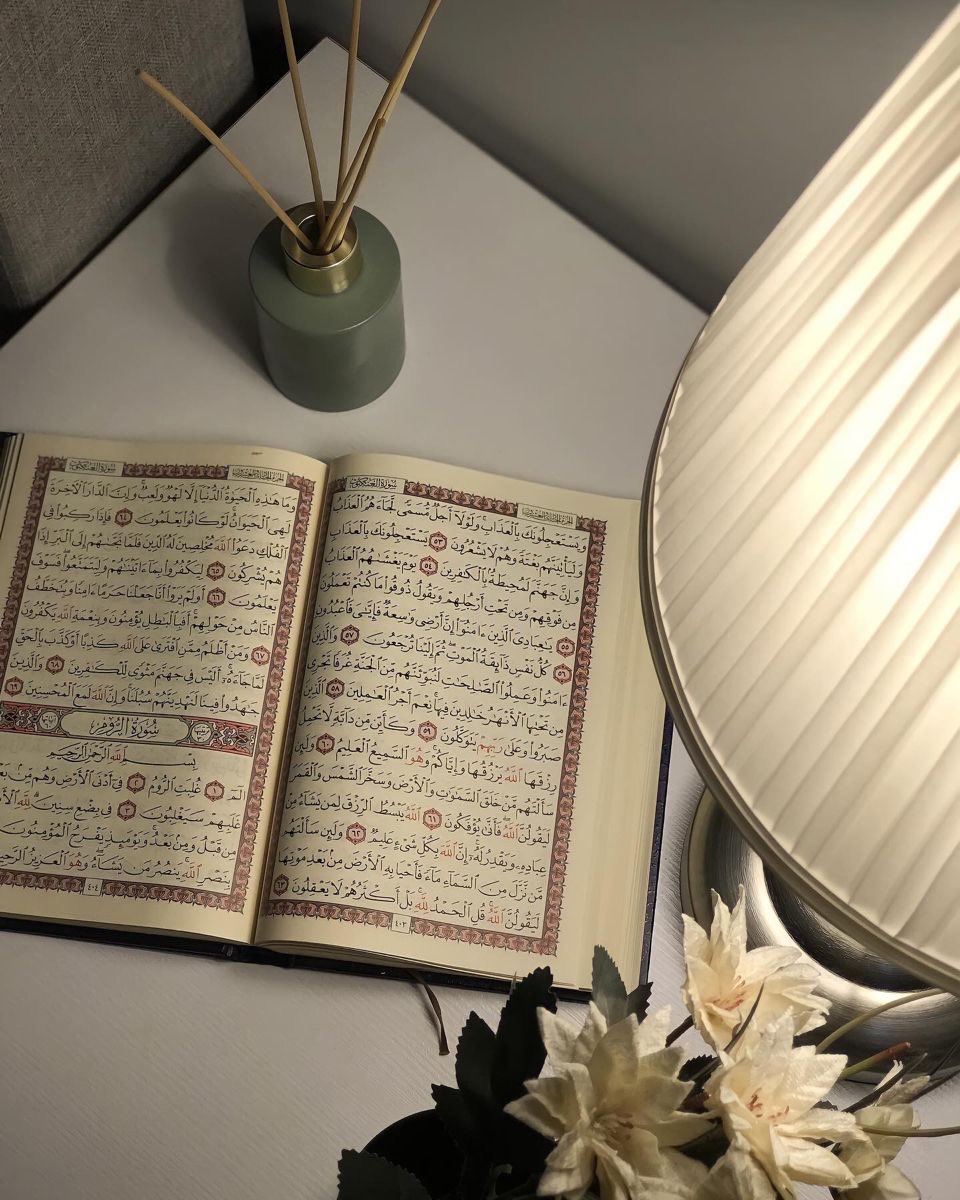 سُورَةُ العَنكَبُوتِ
الجُزْءُ الحَادِي وَالعِشْرُونَ
وَيَسْتَعْجِلُونَكَ بِٱلْعَذَابِ وَلَوْلَآ أَجَلٌ مُّسَمًّى لَّجَآءَهُمُ ٱلْعَذَابُ
وَلَيَأْتِيَنَّهُم بَغْتَةً وَهُمْ لَا يَشْعُرُونَ ٥٣ يَسْتَعْجِلُونَكَ بِٱلْعَذَابِ
وَإِنَّ جَهَنَّمَ لَمُحِيطَةٌۢ بِٱلْكَٰفِرِينَ ٥٤ يَوْمَ يَغْشَىٰهُمُ ٱلْعَذَابُ
مِن فَوْقِهِمْ وَمِن تَحْتِ أَرْجُلِهِمْ وَيَقُولُ ذُوقُوا۟ مَا كُنتُمْ تَعْمَلُونَ
٥٥ يَٰعِبَادِىَ ٱلَّذِينَ ءَامَنُوٓا۟ إِنَّ أَرْضِى وَٰسِعَةٌ فَإِيَّٰىَ فَٱعْبُدُونِ
٥٦ كُلُّ نَفْسٍ ذَآئِقَةُ ٱلْمَوْتِ ثُمَّ إِلَيْنَا تُرْجَعُونَ ٥٧ وَٱلَّذِينَ
ءَامَنُوا۟ وَعَمِلُوا۟ ٱلصَّٰلِحَٰتِ لَنُبَوِّئَنَّهُم مِّنَ ٱلْجَنَّةِ غُرَفًا تَجْرِى
مِن تَحْتِهَا ٱلْأَنْهَٰرُ خَٰلِدِينَ فِيهَا نِعْمَ أَجْرُ ٱلْعَٰمِلِينَ ٥٨ ٱلَّذِينَ
صَبَرُوا۟ وَعَلَىٰ رَبِّهِمْ يَتَوَكَّلُونَ ٥٩ وَكَأَيِّن مِّن دَآبَّةٍ لَّا تَحْمِلُ
رِزْقَهَا ٱللَّهُ يَرْزُقُهَا وَإِيَّاكُمْ وَهُوَ ٱلسَّمِيعُ ٱلْعَلِيمُ ٦٠ وَلَئِن
سَأَلْتَهُم مَّنْ خَلَقَ ٱلسَّمَٰوَٰتِ وَٱلْأَرْضَ وَسَخَّرَ ٱلشَّمْسَ وَٱلْقَمَرَ
لَيَقُولُنَّ ٱللَّهُ فَأَنَّىٰ يُؤْفَكُونَ ٦١ ٱللَّهُ يَبْسُطُ ٱلرِّزْقَ لِمَن يَشَآءُ مِنْ
عِبَادِهِۦ وَيَقْدِرُ لَهُۥٓ إِنَّ ٱللَّهَ بِكُلِّ شَىْءٍ عَلِيمٌ ٦٢ وَلَئِن سَأَلْتَهُم
مَّن نَّزَّلَ مِنَ ٱلسَّمَآءِ مَآءً فَأَحْيَا بِهِ ٱلْأَرْضَ مِنۢ بَعْدِ مَوْتِهَا
لَيَقُولُنَّ ٱللَّهُ قُلِ ٱلْحَمْدُ لِلَّهِ بَلْ أَكْثَرُهُمْ لَا يَعْقِلُونَ ٦٣
٤٠٣
الجُزْءُ الحَادِي وَالعِشْرُونَ
سُورَةُ العَنكَبُوتِ
وَمَا هَٰذِهِ ٱلْحَيَوٰةُ ٱلدُّنْيَآ إِلَّا لَهْوٌ وَلَعِبٌ وَإِنَّ ٱلدَّارَ ٱلْءَاخِرَةَ
لَهِىَ ٱلْحَيَوَانُ لَوْ كَانُوا۟ يَعْلَمُونَ ٦٤ فَإِذَا رَكِبُوا۟ فِى
ٱلْفُلْكِ دَعَوُا۟ ٱللَّهَ مُخْلِصِينَ لَهُ ٱلدِّينَ فَلَمَّا نَجَّىٰهُمْ إِلَى ٱلْبَرِّ إِذَا
هُمْ يُشْرِكُونَ ٦٥ لِيَكْفُرُوا۟ بِمَآ ءَاتَيْنَٰهُمْ وَلِيَتَمَتَّعُوا۟ فَسَوْفَ
يَعْلَمُونَ ٦٦ أَوَلَمْ يَرَوْا۟ أَنَّا جَعَلْنَا حَرَمًا ءَامِنًا وَيُتَخَطَّفُ
ٱلنَّاسُ مِنْ حَوْلِهِمْ أَفَبِٱلْبَٰطِلِ يُؤْمِنُونَ وَبِنِعْمَةِ ٱللَّهِ يَكْفُرُونَ
٦٧ وَمَنْ أَظْلَمُ مِمَّنِ ٱفْتَرَىٰ عَلَى ٱللَّهِ كَذِبًا أَوْ كَذَّبَ بِٱلْحَقِّ
لَمَّا جَآءَهُۥٓ أَلَيْسَ فِى جَهَنَّمَ مَثْوًى لِّلْكَٰفِرِينَ ٦٨ وَٱلَّذِينَ
جَٰهَدُوا۟ فِينَا لَنَهْدِيَنَّهُمْ سُبُلَنَا وَإِنَّ ٱللَّهَ لَمَعَ ٱلْمُحْسِنِينَ ٦٩
سُورَةُ الرُّومِ
بِسْمِ ٱللَّهِ ٱلرَّحْمَٰنِ ٱلرَّحِيمِ
الٓمٓ ١ غُلِبَتِ ٱلرُّومُ ٢ فِىٓ أَدْنَى ٱلْأَرْضِ وَهُم مِّنۢ
غَلَبِهِمْ سَيَغْلِبُونَ ٣ فِى بِضْعِ سِنِينَ لِلَّهِ
مِن قَبْلُ وَمِنۢ بَعْدُ وَيَوْمَئِذٍ يَفْرَحُ ٱلْمُؤْمِنُونَ
بِنَصْرِ ٱللَّهِ يَنصُرُ مَن يَشَآءُ وَهُوَ ٱلْعَزِيزُ ٱلرَّحِيمُ
٤٠٤